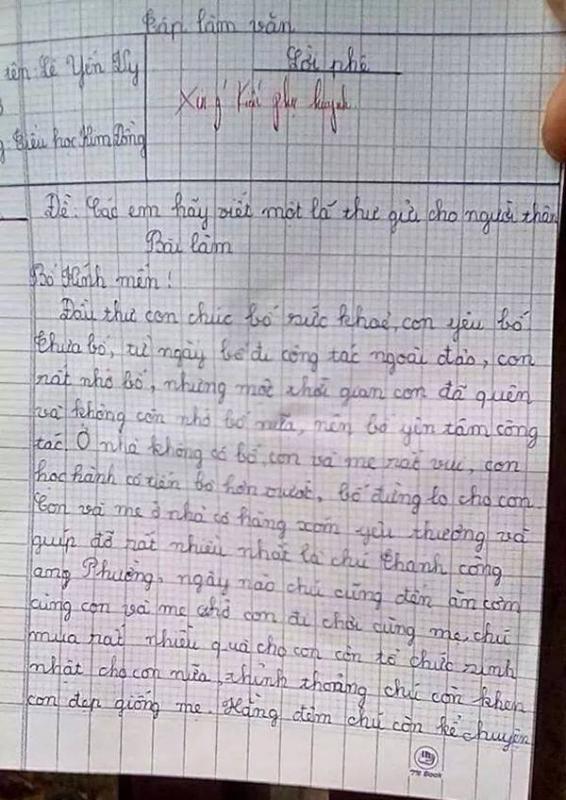 Ráp làm văn
tên Lê Yến Vy
Lời phê
Xin ý kiến phụ huynh
Tiểu học Kim Đồng
Đề: Các em hãy viết một lá thư gửi cho người thân
Bài làm
Bố kính mến!
Đầu thư con chúc bố sức khoẻ, con yêu bố
Thưa bố, từ ngày bố đi công tác ngoài đảo, con
rất nhớ bố, nhưng một thời gian con đã quên
và không còn nhớ bố nữa, nên bố yên tâm công
tác. Ở nhà không có bố, con và mẹ rất vui, con
học hành có tiến bộ hơn trước, bố đừng lo cho con
Con và mẹ ở nhà có hàng xóm yêu thương và
giúp đỡ rất nhiều nhất là chú Thanh công
ang Phường, ngày nào chú cũng đến ăn cơm
cùng con và mẹ chở con đi chơi cùng mẹ, chú
mua rất nhiều quà cho con còn tổ chức sinh
nhật cho con nữa, thỉnh thoảng chú còn khen
con đẹp giống mẹ. Hằng đêm chú còn kể chuyện
TN Book